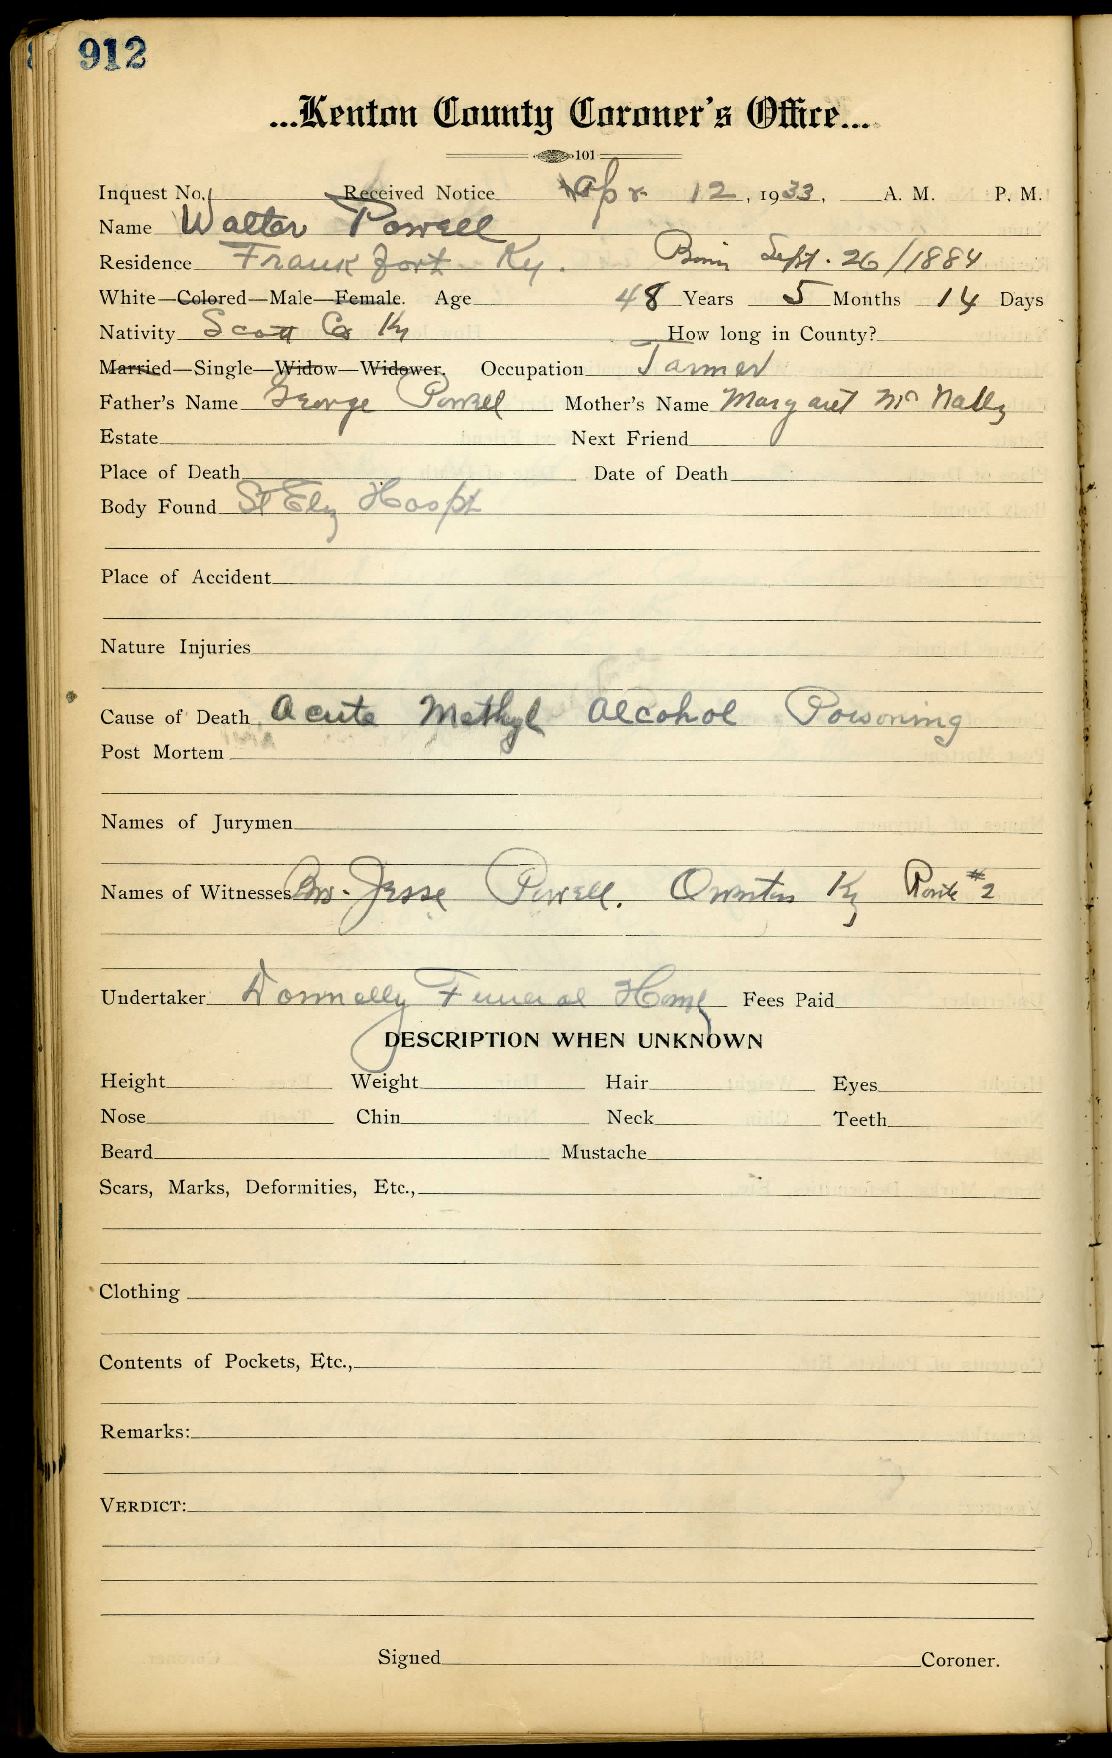 912
...Kenton County Coroner's Office...
101
Inquest No. Received Notice Apr 12, 1933, A. M. P. M.
Name Walter Powell
Residence Frankfort Ky. Born Sept. 26/1884
White—Colored—Male—Female. Age 48 Years 5 Months 14 Days
Nativity Scott Co Ky How long in County?
Married—Single—Widow—Widower. Occupation Farmer
Father's Name George Powell Mother's Name Margaret Mc Nally
Estate Next Friend
Place of Death Date of Death
Body Found St Elz Hospt
Place of Accident
Nature Injuries
Cause of Death Acute Methyl Alcohol Poisoning
Post Mortem
Names of Jurymen
Names of Witnesses Bro. Jesse Powell. Owenton Ky Route #2
Undertaker Donnelly Funeral Home Fees Paid
DESCRIPTION WHEN UNKNOWN
Height Weight Hair Eyes
Nose Chin Neck Teeth
Beard Mustache
Scars, Marks, Deformities, Etc.,
Clothing
Contents of Pockets, Etc.,
Remarks:
VERDICT:
Signed Coroner.